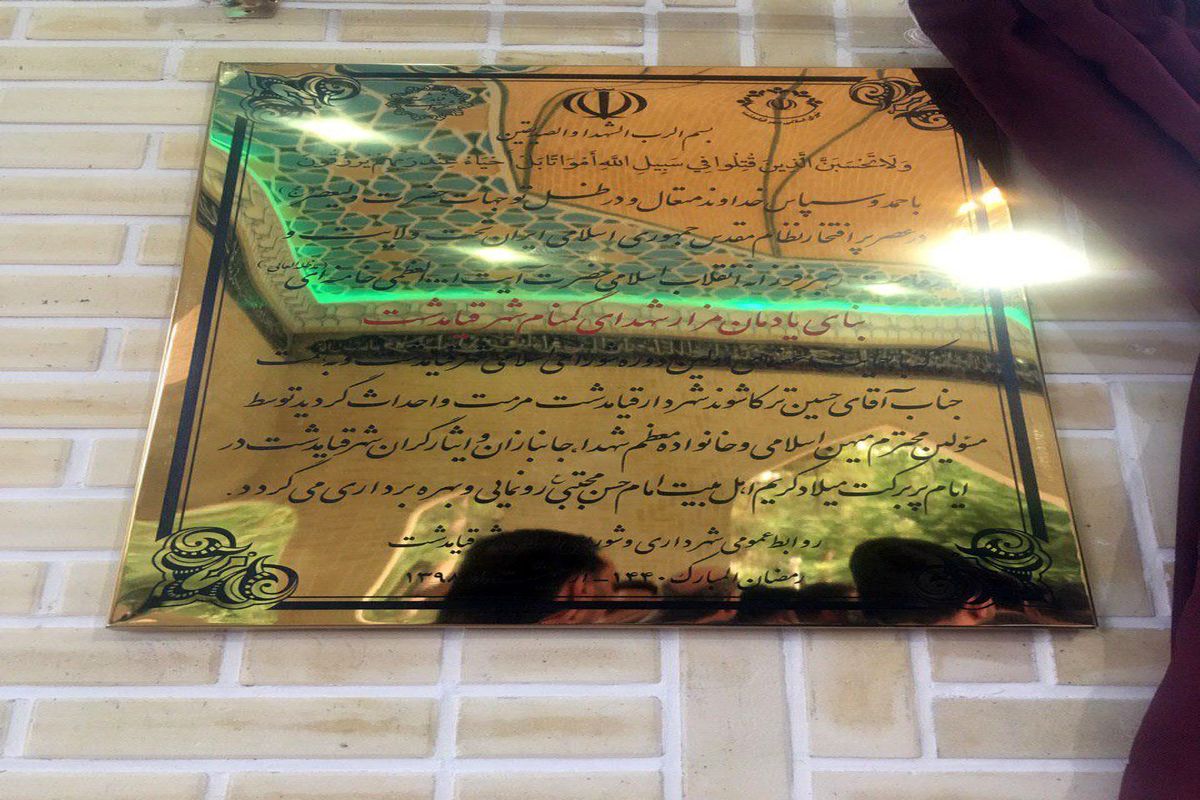 بسم الرب الشهدا و الصدیقین
وَلَا تَحْسَبَنَّ الَّذِينَ قُتِلُوا فِي سَبِيلِ اللَّهِ أَمْوَاتًا بَلْ أَحْيَاءٌ عِنْدَ رَبِّهِمْ يُرْزَقُونَ
با حمد و سپاس خداوند متعال و در ظل توجهات حضرت ولیعصر (عج)
در عصر پر افتخار نظام مقدس جمهوری اسلامی ایران تحت ولایت و
رهبر فرزانه انقلاب اسلامی حضرت آیت ا... العظمی خامنه ای (مدظله العالی)
بنای یادمان مزار شهدای گمنام شهر قیامدشت
که با دوره شورای اسلامی شهر قیامدشت و به همت
جناب آقای حسین ترکاشوند شهردار قیامدشت مرمت و احداث گردید توسط
مسئولین محترم میهن اسلامی و خانواده معظم شهدا، جانبازان و ایثارگران شهر قیامدشت در
ایام پر برکت میلاد کریم اهل بیت امام حسن مجتبی (ع) رونمایی و بهره برداری می گردد.
روابط عمومی شهرداری و شورای شهر قیامدشت
رمضان المبارک ۱۴۴۰ - ۱۳۹۸